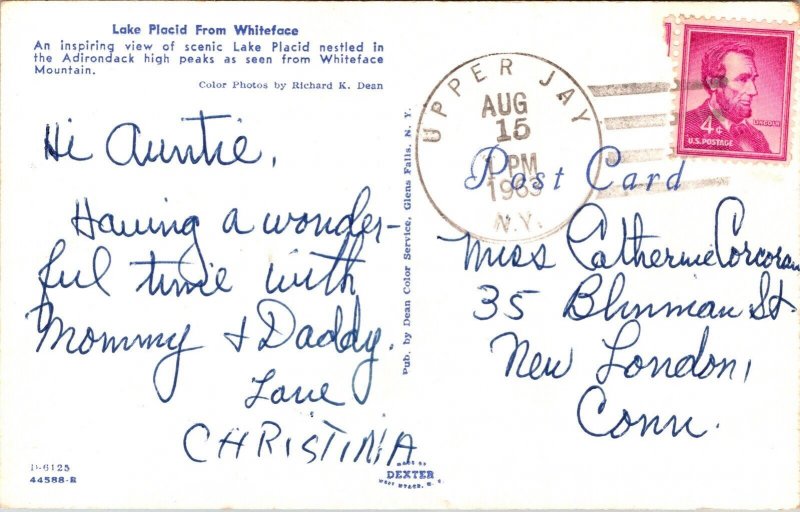 Lake Placid From Whiteface
An inspiring view of scenic Lake Placid nestled in
the Adirondack high peaks as seen from Whiteface
Mountain.
Color Photos by Richard K. Dean
Hi Auntie,
Having a wonder-
ful time with
Mommy & Daddy.
Love
CHRISTINA
D-6125
44588-B
Pub. by Dean Color Service, Glens Falls, N. Y.
MADE BY
DEXTER
WEST NYACK, N. Y.
UPPER JAY
AUG
15
PM
1963
N.Y.
4¢
LINCOLN
U.S. POSTAGE
Post Card
Miss Catherine Corcoran
35 Blinman St.
New London,
Conn.